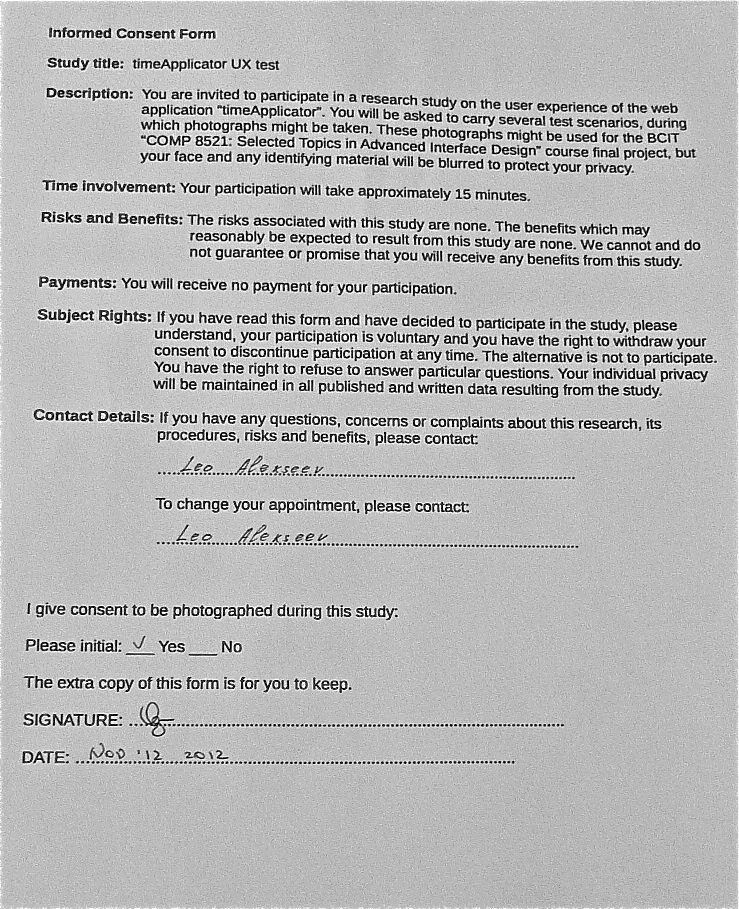 Informed Consent Form
Study title: timeApplicator UX test
Description: You are invited to participate in a research study on the user experience of the web
application "timeApplicator". You will be asked to carry several test scenarios, during
which photographs might be taken. These photographs might be used for the BCIT
"COMP 8521: Selected Topics in Advanced Interface Design" course final project, but
your face and any identifying material will be blurred to protect your privacy.
Time involvement: Your participation will take approximately 15 minutes.
Risks and Benefits: The risks associated with this study are none. The benefits which may
reasonably be expected to result from this study are none. We cannot and do
not guarantee or promise that you will receive any benefits from this study.
Payments: You will receive no payment for your participation.
Subject Rights: If you have read this form and have decided to participate in the study, please
understand, your participation is voluntary and you have the right to withdraw your
consent to discontinue participation at any time. The alternative is not to participate.
You have the right to refuse to answer particular questions. Your individual privacy
will be maintained in all published and written data resulting from the study.
Contact Details: If you have any questions, concerns or complaints about this research, its
procedures, risks and benefits, please contact:
Leo Alekseev
To change your appointment, please contact:
Leo Alekseev
I give consent to be photographed during this study:
Please initial: ✓ Yes ___ No
The extra copy of this form is for you to keep.
SIGNATURE:
DATE: Nov '12 2012